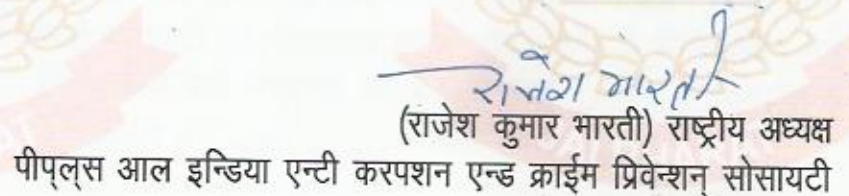 राजेश भारती
(राजेश कुमार भारती) राष्ट्रीय अध्यक्ष
पीपल्स आल इन्डिया एन्टी करपशन एन्ड क्राईम प्रिवेन्शन् सोसायटी